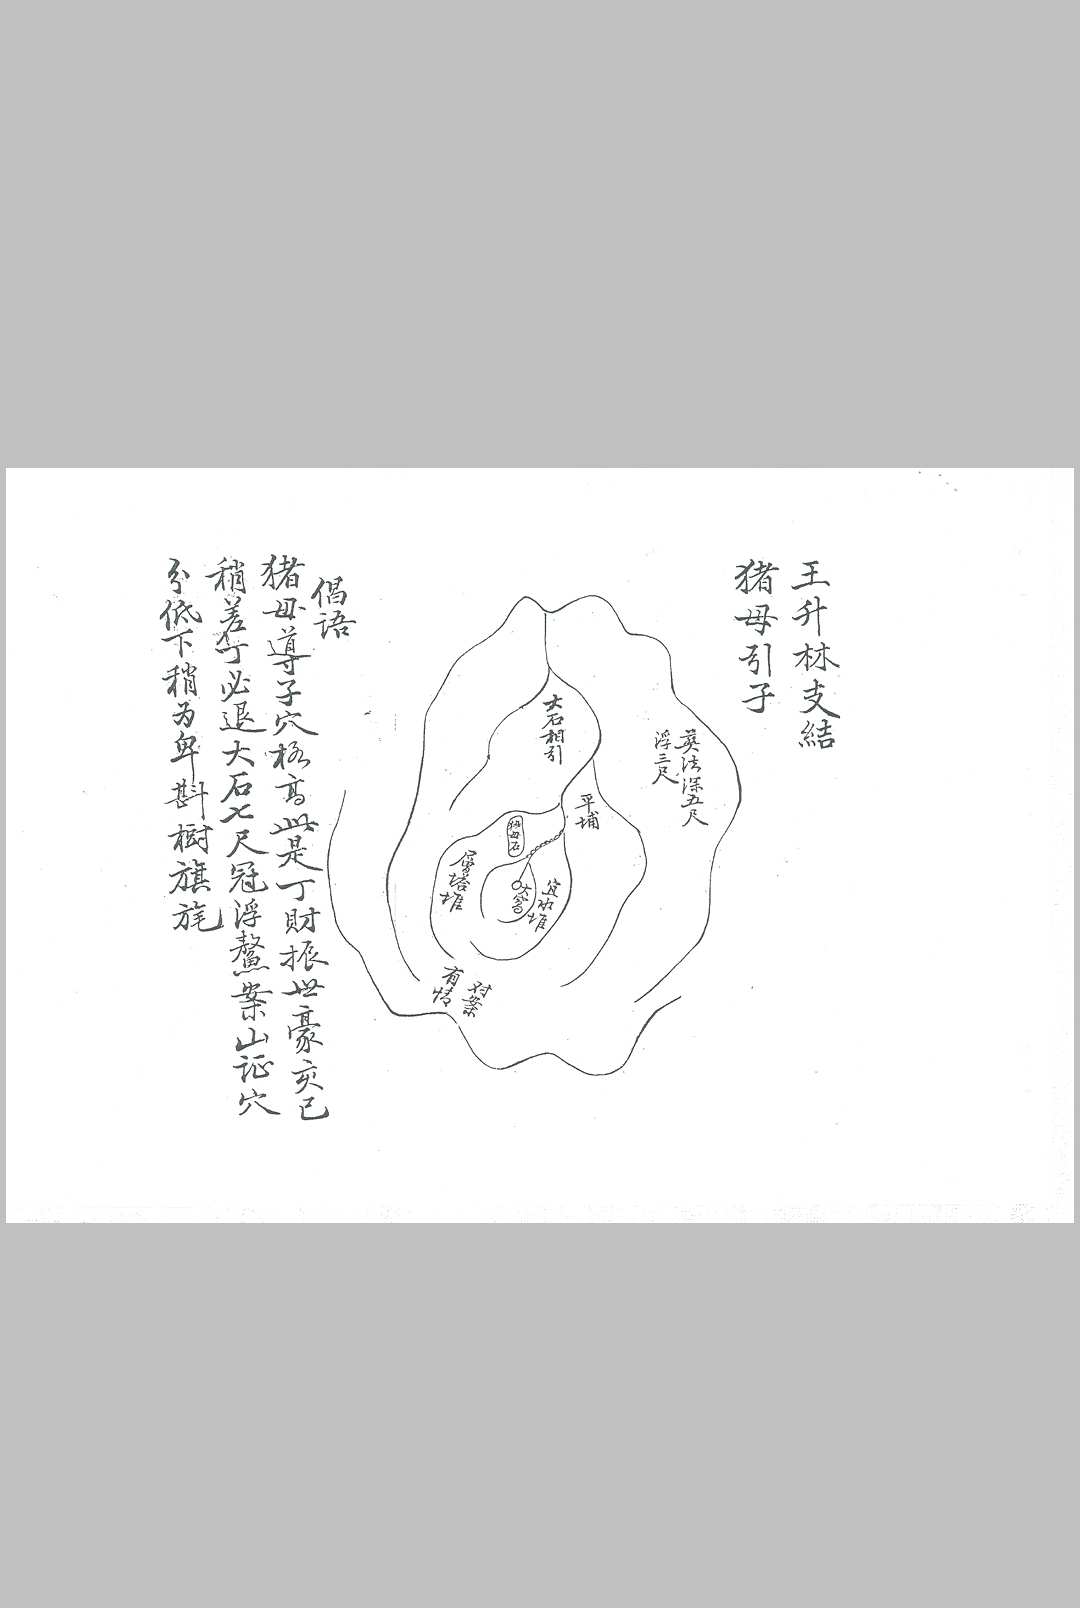 王升林支結
猪母引子
葬法深五尺
浮三尺
大石相引
平埔
猪母石
層塔堆
大窩
堆
对案
有情
倡语
猪母導子穴格高此是丁财振世豪亥已
稍差丁必退大石七尺冠浮鰲案山証穴
分低下稍为卑斟樹旗旄